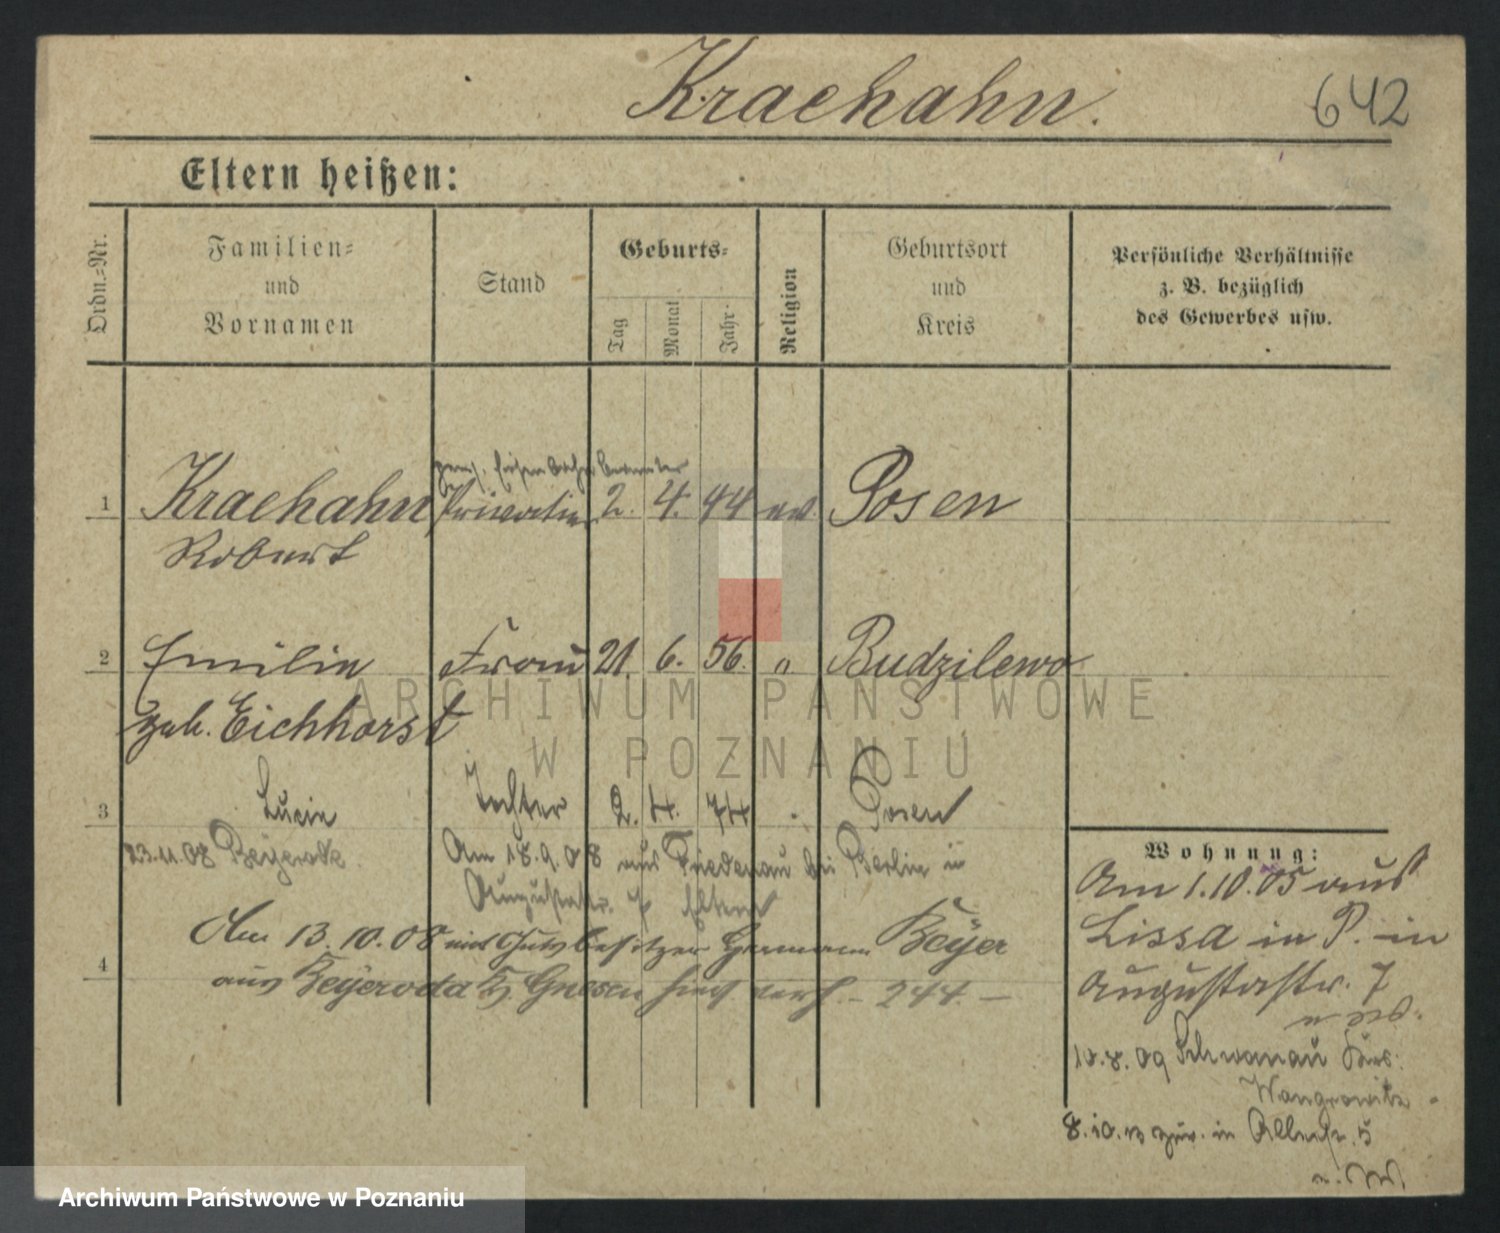 Kraehahn.
642
Eltern heißen:
Ordn.-Nr.
Familien-
und
Vornamen
Stand
Geburts-
Tag
Monat
Jahr
Religion
Geburtsort
und
Kreis
Persönliche Verhältnisse
z. B. bezüglich
des Gewerbes usw.
pens. Eisenbahnbeamter
1 Kraehahn Privatier 2. 4. 44 ev. Posen
Robert
2 Emilie Frau 21. 6. 56. " Budzilewo
geb. Eichhorst
3 Lucie Tochter 2. 4. 74 " Posen
23.11.08 Beyerode
Am 18.9.08 aus Friedenau bei Berlin in
Augustastr. 7 Eltern
Am 13.10.08 mit Gutsbesitzer Hermann Beyer
4 aus Beyeroda Kr. Gnesen hier verh. – 244. –
Wohnung:
Am 1.10.05 aus
Lissa in P. in
Augustastr. 7
10.8.09 Schwanau Krs.
Wongrowitz
8.10. zur. in 5
ARCHIWUM PAŃSTWOWE
W POZNANIU
Archiwum Państwowe w Poznaniu